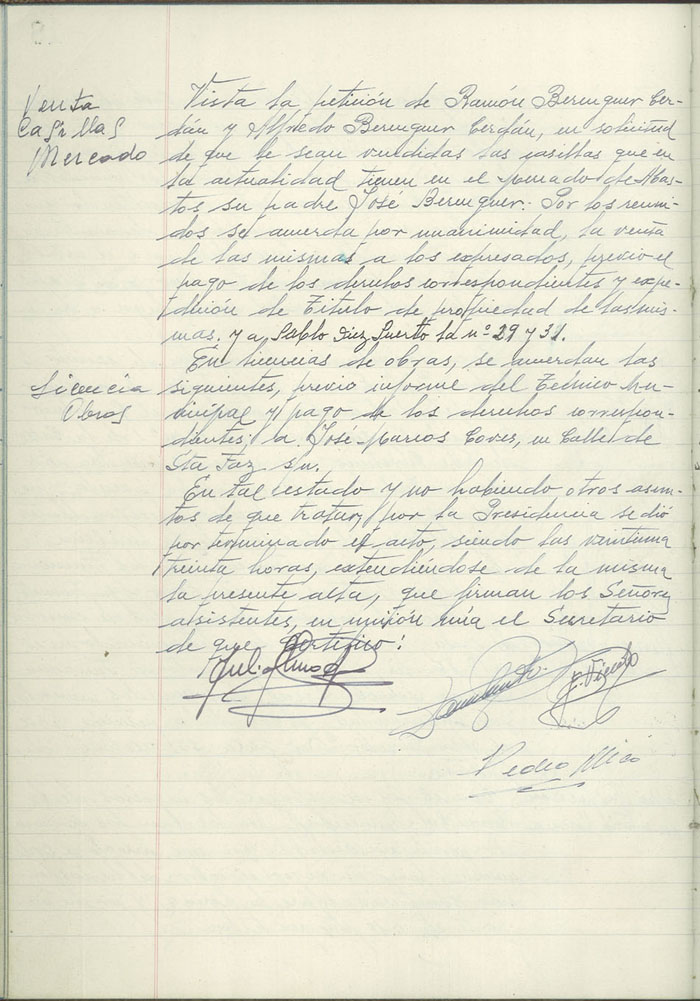 Venta
Casillas
Mercado
Vista la petición de Ramón Berenguer Cer-
dán y Alfredo Berenguer Cerdán, en solicitud
de que le sean vendidas las casillas que en
la actualidad tienen en el Mercado de Abas-
tos su padre José Berenguer. Por los reuni-
dos se acuerda por unanimidad, la venta
de las mismas a los expresados, previo el
pago de los derechos correspondientes y expe-
dición de Titulo de propiedad de las mis-
mas. y a Pablo Diez Puerto la nº 29 y 31.
Licencia
Obras
En licencias de obras, se acuerdan las
siguientes, previo informe del Técnico Mu-
nicipal y pago de los derechos correspon-
dientes; a José Marcos Coves, en Calle de
Sta Faz sn.
En tal estado y no habiendo otros asun-
tos de que tratar, por la Presidencia se dió
por terminado el acto, siendo las veintiuna
treinta horas, extendiéndose de la misma
la presente acta, que firman los Señores
asistentes, en unión mía el Secretario
de que certifico:
Pedro Micó